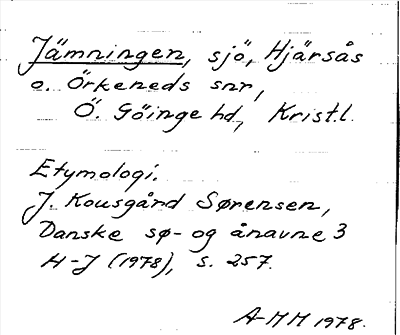 Jämningen, sjö, Hjärsås
o. Örkeneds snr,
Ö. Göinge hd, Krist.l.
Etymologi.
J. Kousgård Sørensen,
Danske sø- og ånavne 3
H-J (1978), s. 257.
A-MM 1978.